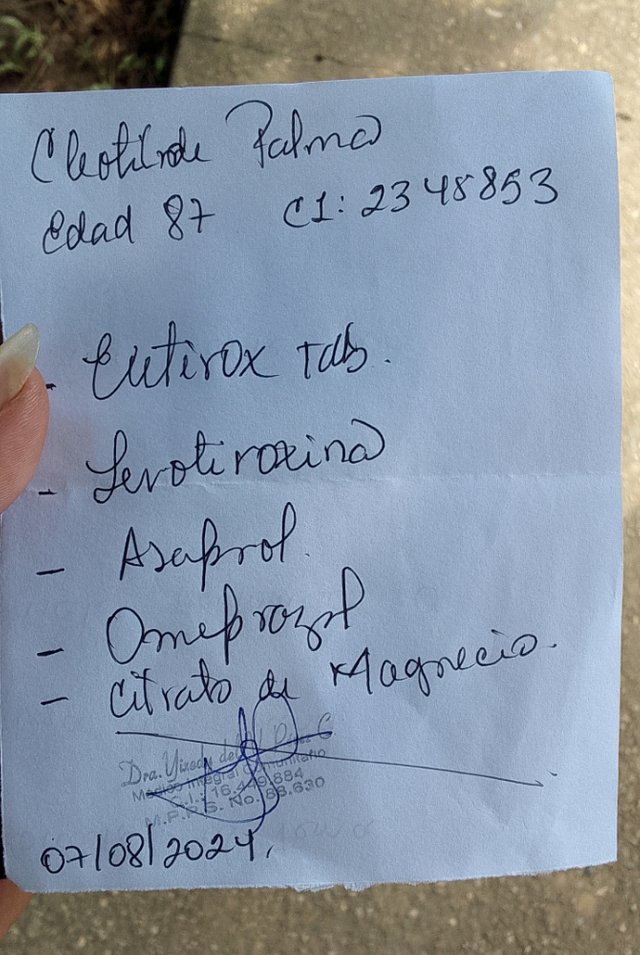 Cleotilde Palma
Edad 87 CI: 2348853
- Eutirox Tab.
- Levotiroxina
- Asaprol.
- Omeprazol
- Citrato de Magnecio.
Dra. del C
Medico Integral Comunitario
C.I.: 16.449.884
M.P.P.S. No. 88.630
07/08/2024,